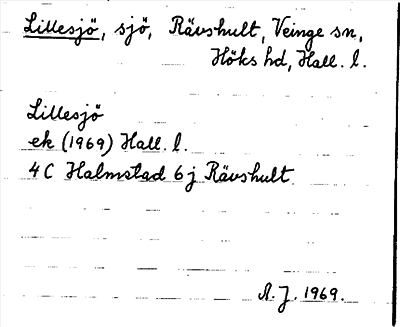 Lillesjö, sjö, Rävshult, Veinge sn,
Höks hd, Hall. l.
Lillesjö
ek (1969) Hall. l.
4 C Halmstad 6 j Rävshult
A. J. 1969.